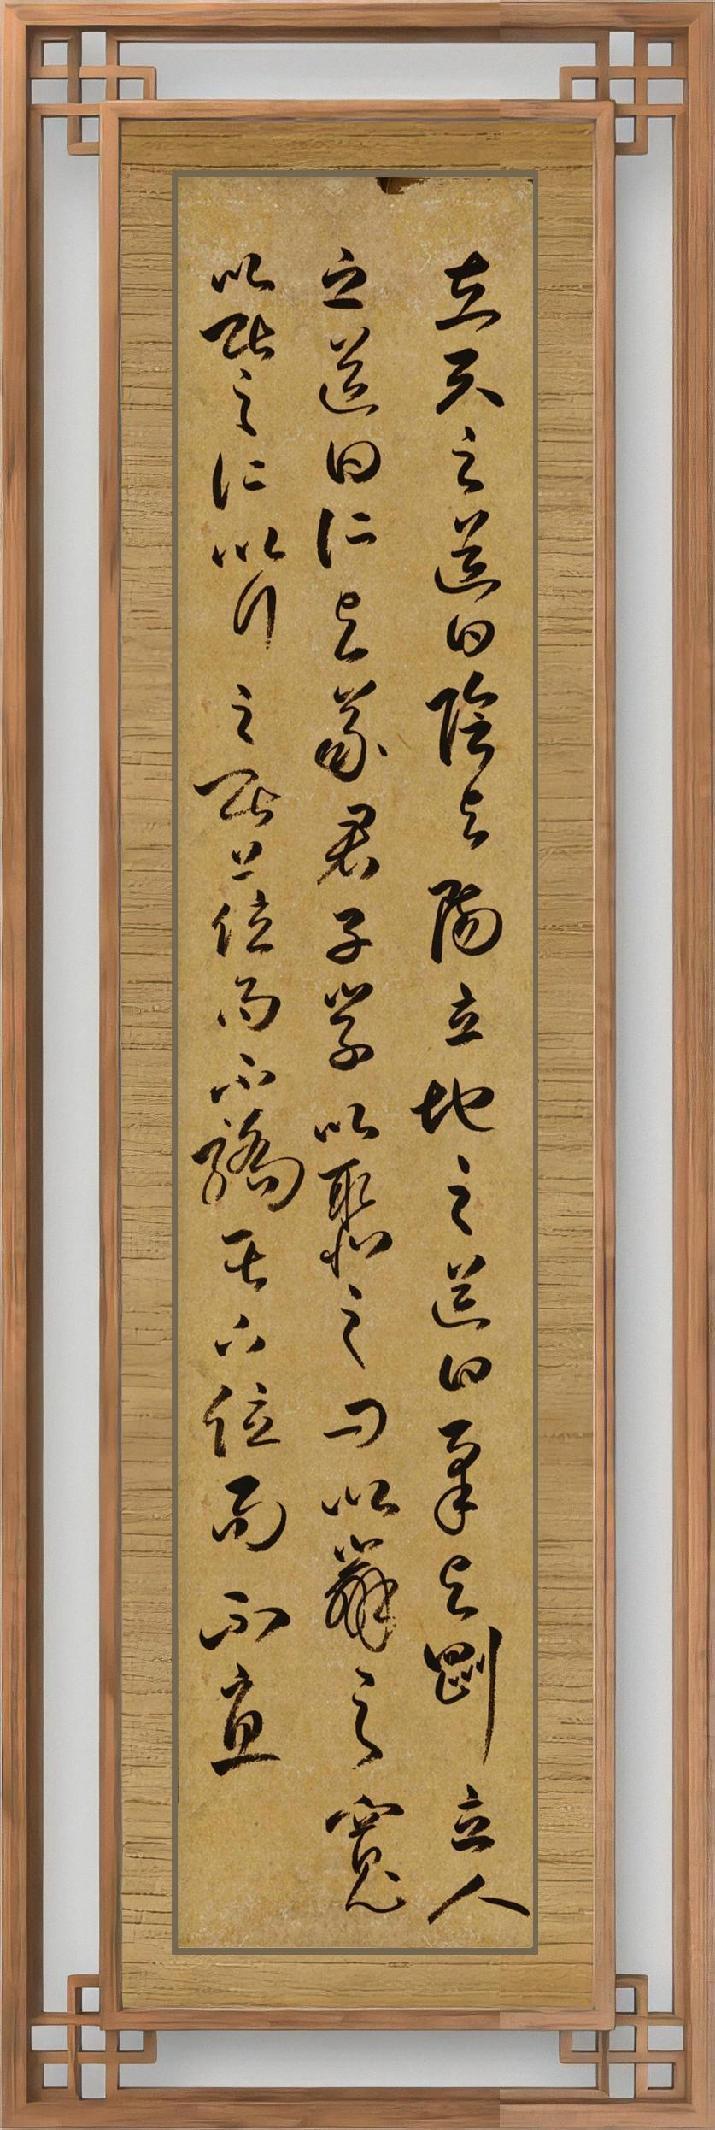 立天之道曰陰與陽立地之道曰柔與剛立人
之道曰仁與義君子學以聚之問以辨之寬
以居之仁以行之居上位而不驕在下位而不憂